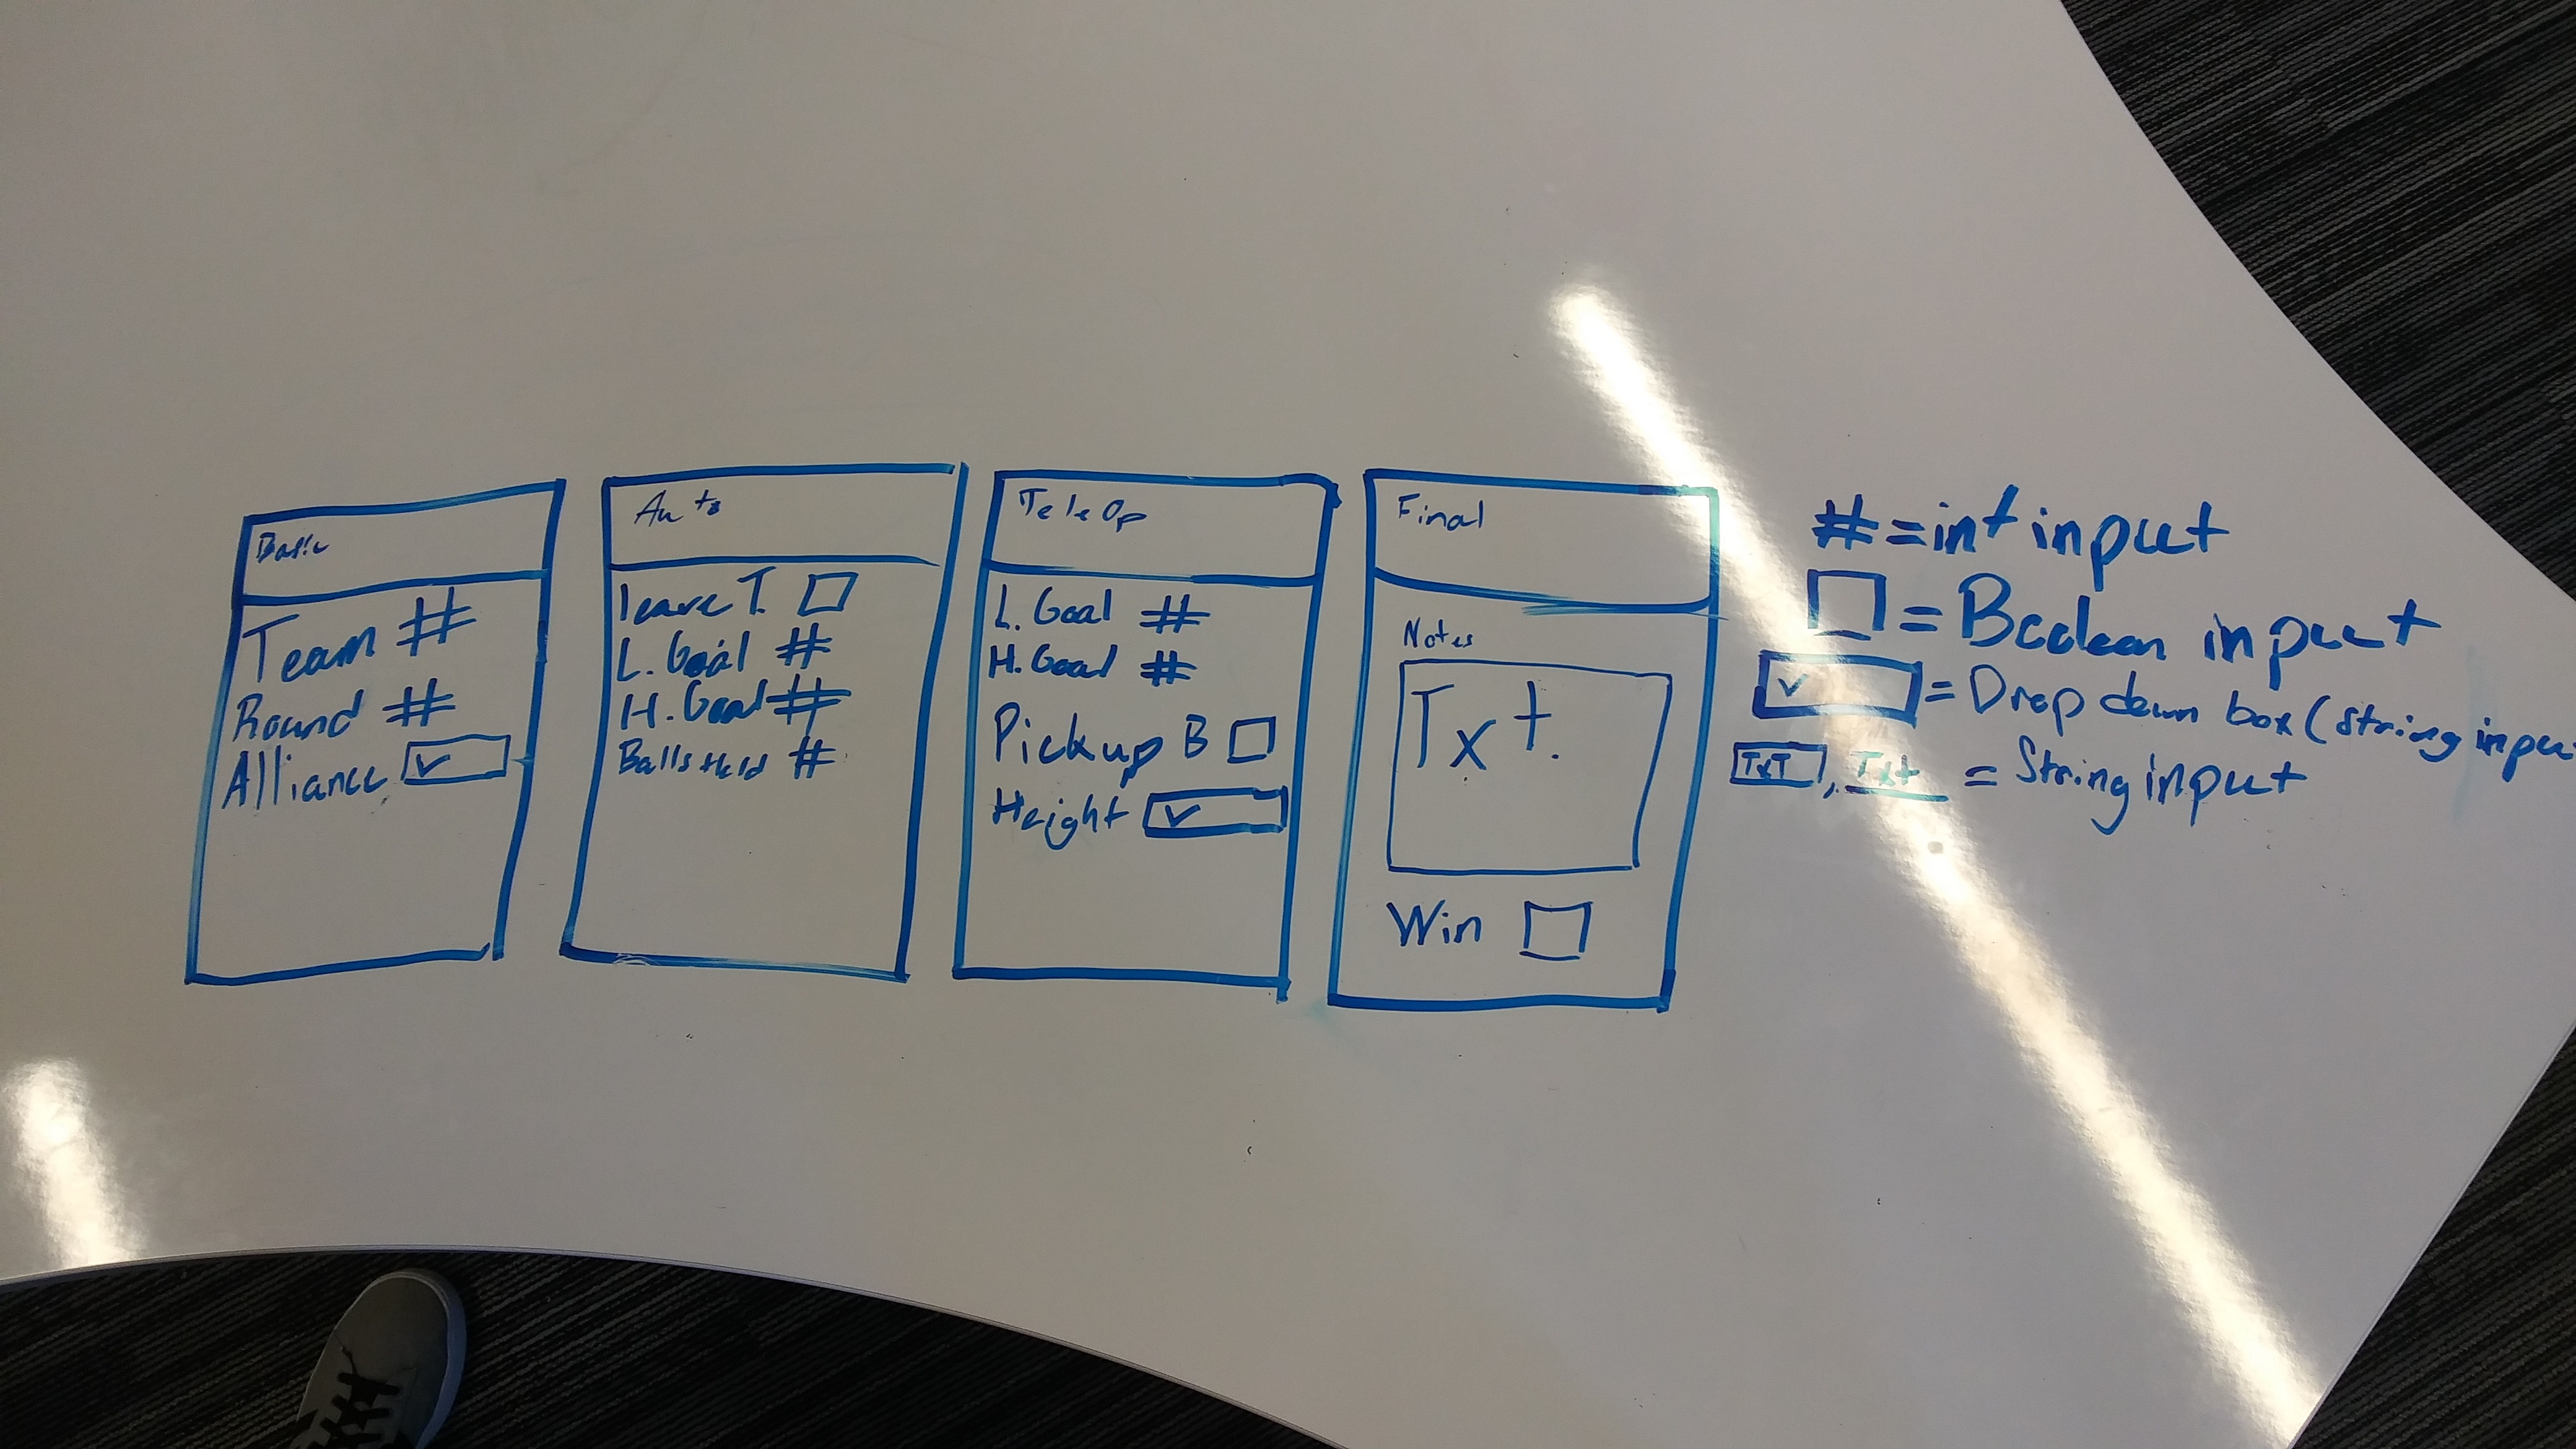 Basic
Team #
Round #
Alliance ✓
Auto
leave T.
L. Goal #
H. Goal #
Balls Held #
TeleOp
L. Goal #
H. Goal #
Pickup B
Height ✓
Final
Notes
Txt.
Win
# = int input
= Boolean input
✓ = Drop down box (string inpu
TxT, Txt = String input